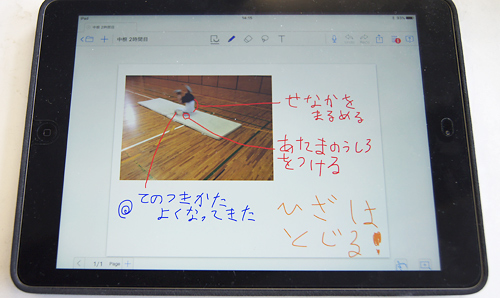 iPad
14:15
中根 2時間目
せなかを
まるめる
あたまのうしろ
をつける
◎てのつきかた
よくなってきた
ひざは
とじる!
1/1 Page